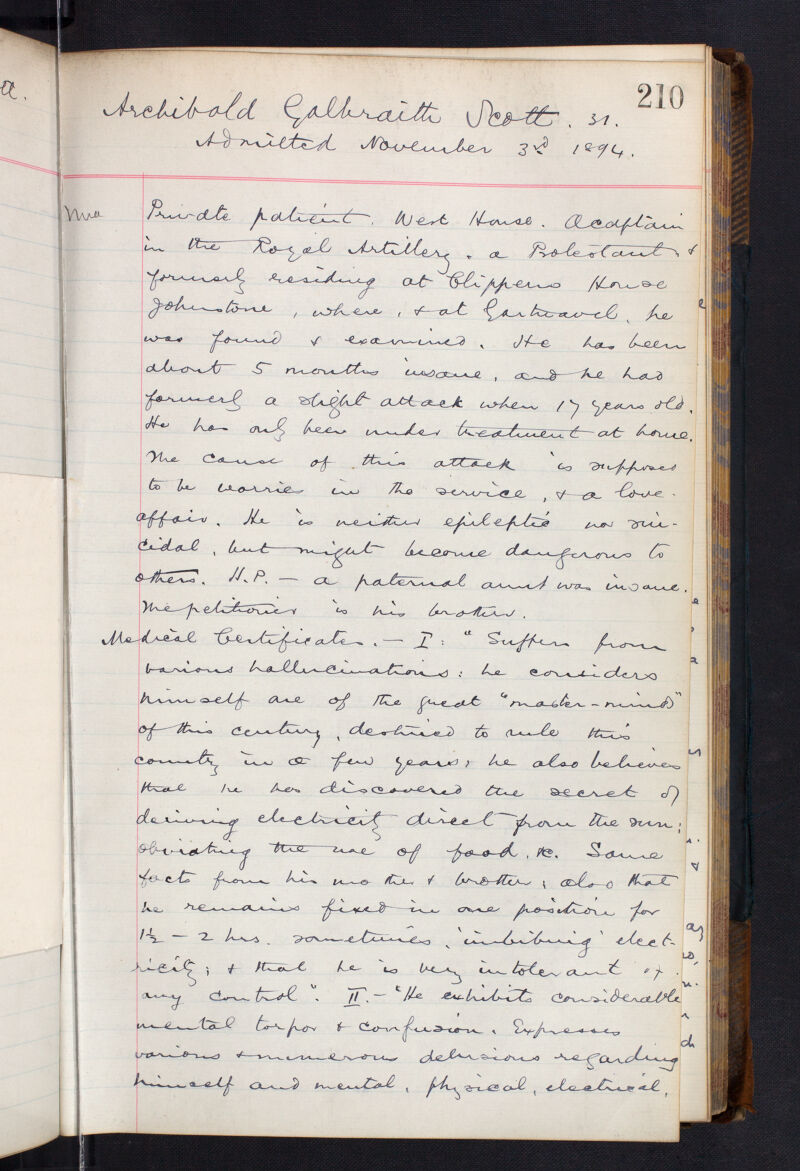 210
Archibald Galbraith Scott. 31.
Admitted November 3rd 1894.
Private patient. West House. A captain
in the Royal Artillery. a Protestant &
formerly residing at Clippens House
Johnstone, where, & at Gartnavel, he
was found & examined. He has been
about 5 months insane, and he had
formerly a slight attack when 17 years old.
He has only been under treatment at home.
The cause of this attack is supposed
to be worries in the service, & a love-
affair. He is neither epileptic nor sui-
cidal, but might become dangerous to
others. H.P. — a paternal aunt was insane.
The petitioner is his brother.
Medical Certificates. — I: "Suffers from
various hallucinations: he considers
himself one of the great "master-minds"
of this century, destined to rule this
country in a few years; he also believes
that he has discovered the secret of
deriving electricity direct from the sun;
obviating the use of food, &c. Same
facts from his mother & brother; also that
he remains fixed in one position for
1½ - 2 hrs. sometimes, 'imbibing' elect-
ricity; & that he is very intolerant of
any control". II. — "He exhibits considerable
mental torpor & confusion. Expresses
various & numerous delusions regarding
himself and mental, physical, electrical,